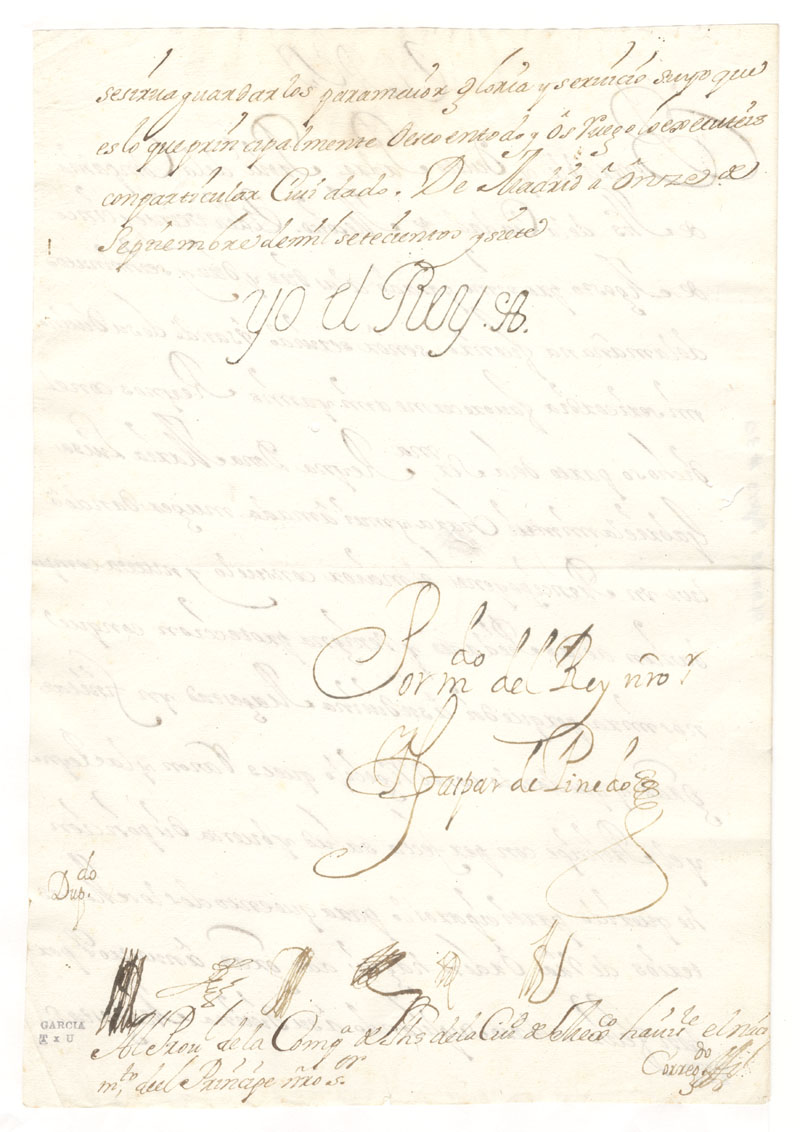 se sirua guardarlos para maior gloria y seruicio suyo que
es lo que principalmente deseo en todo y ôs ruego lo executeis
con particular Cuidado. De Madrid â Onze de
Septiembre de mil setecientos y siete
yo el Rey.
Por m.do del Rey nro s.r
Gaspar de Pinedo
Dup.do
Al Prou.l de la Comp.a de Jhs de la Ciu.d de Mexco
m.to del Principe nro s.or
Correg.do
GARCIA
T x U